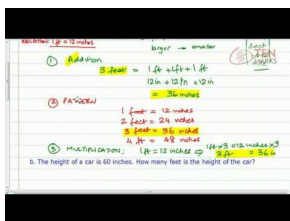 RELATION: 1 ft = 12 inches
bigger → smaller
feet
TEN
MARKS
① Addition
3 feet = 1 ft + 1 ft + 1 ft
12 in + 12 in + 12 in
= 36 inches
② PATTERN
1 foot = 12 inches
2 feet = 24 inches
3 feet = 36 inches
4 ft = 48 inches
③ MULTIPLICATION: 1 ft = 12 inches ⇒ 1 ft × 3 = 12 inches × 3
3 ft = 36
b. The height of a car is 60 inches. How many feet is the height of the car?